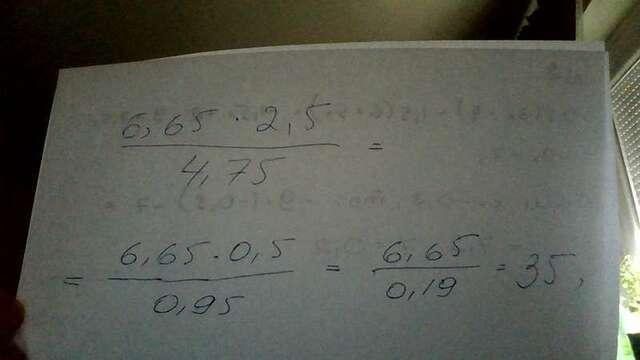 6,65 · 2,5
4,75 =
= 6,65 · 0,5 / 0,95 = 6,65 / 0,19 = 35,